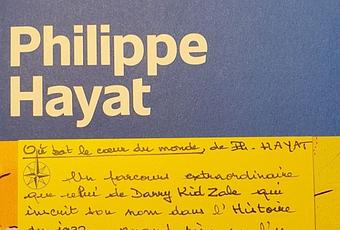 Philippe
Hayat
Où bat le cœur du monde, de Ph. HAYAT
Un parcours extraordinaire
que celui de Darry Kid Zale qui
inscrit son nom dans l'Histoire
du jazz